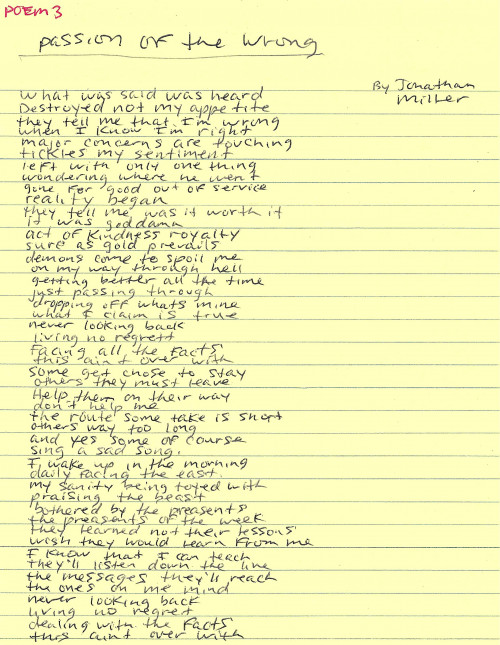 POEM 3
passion of the wrong
By Jonathan
Miller
what was said was heard
Destroyed not my appetite
they tell me that I'm wrong
when I know I'm right
major concerns are touching
tickles my sentiment
left with only one thing
wondering where he went
gone for good out of service
reality began
they tell me was it worth it
it was goddamn
act of kindness royalty
sure as gold prevails
demons come to spoil me
on my way through hell
getting better all the time
just passing through
dropping off whats mine
what I claim is true
never looking back
living no regrett
Facing all the Facts
this aint over with
some get chose to stay
others they must leave
Help them on their way
don't help me
the route some take is short
others way too long
and yes some of course
sing a sad song.
I wake up in the morning
daily facing the east.
my sanity being toyed with
praising the beast
bothered by the preasents
the preasents of the week
they learned not their lessons
wish they would learn from me
I know that I can teach
they'll listen down the line
the messages they'll reach
the ones on me mind
never looking back
living no regret
dealing with the Facts
this aint over with